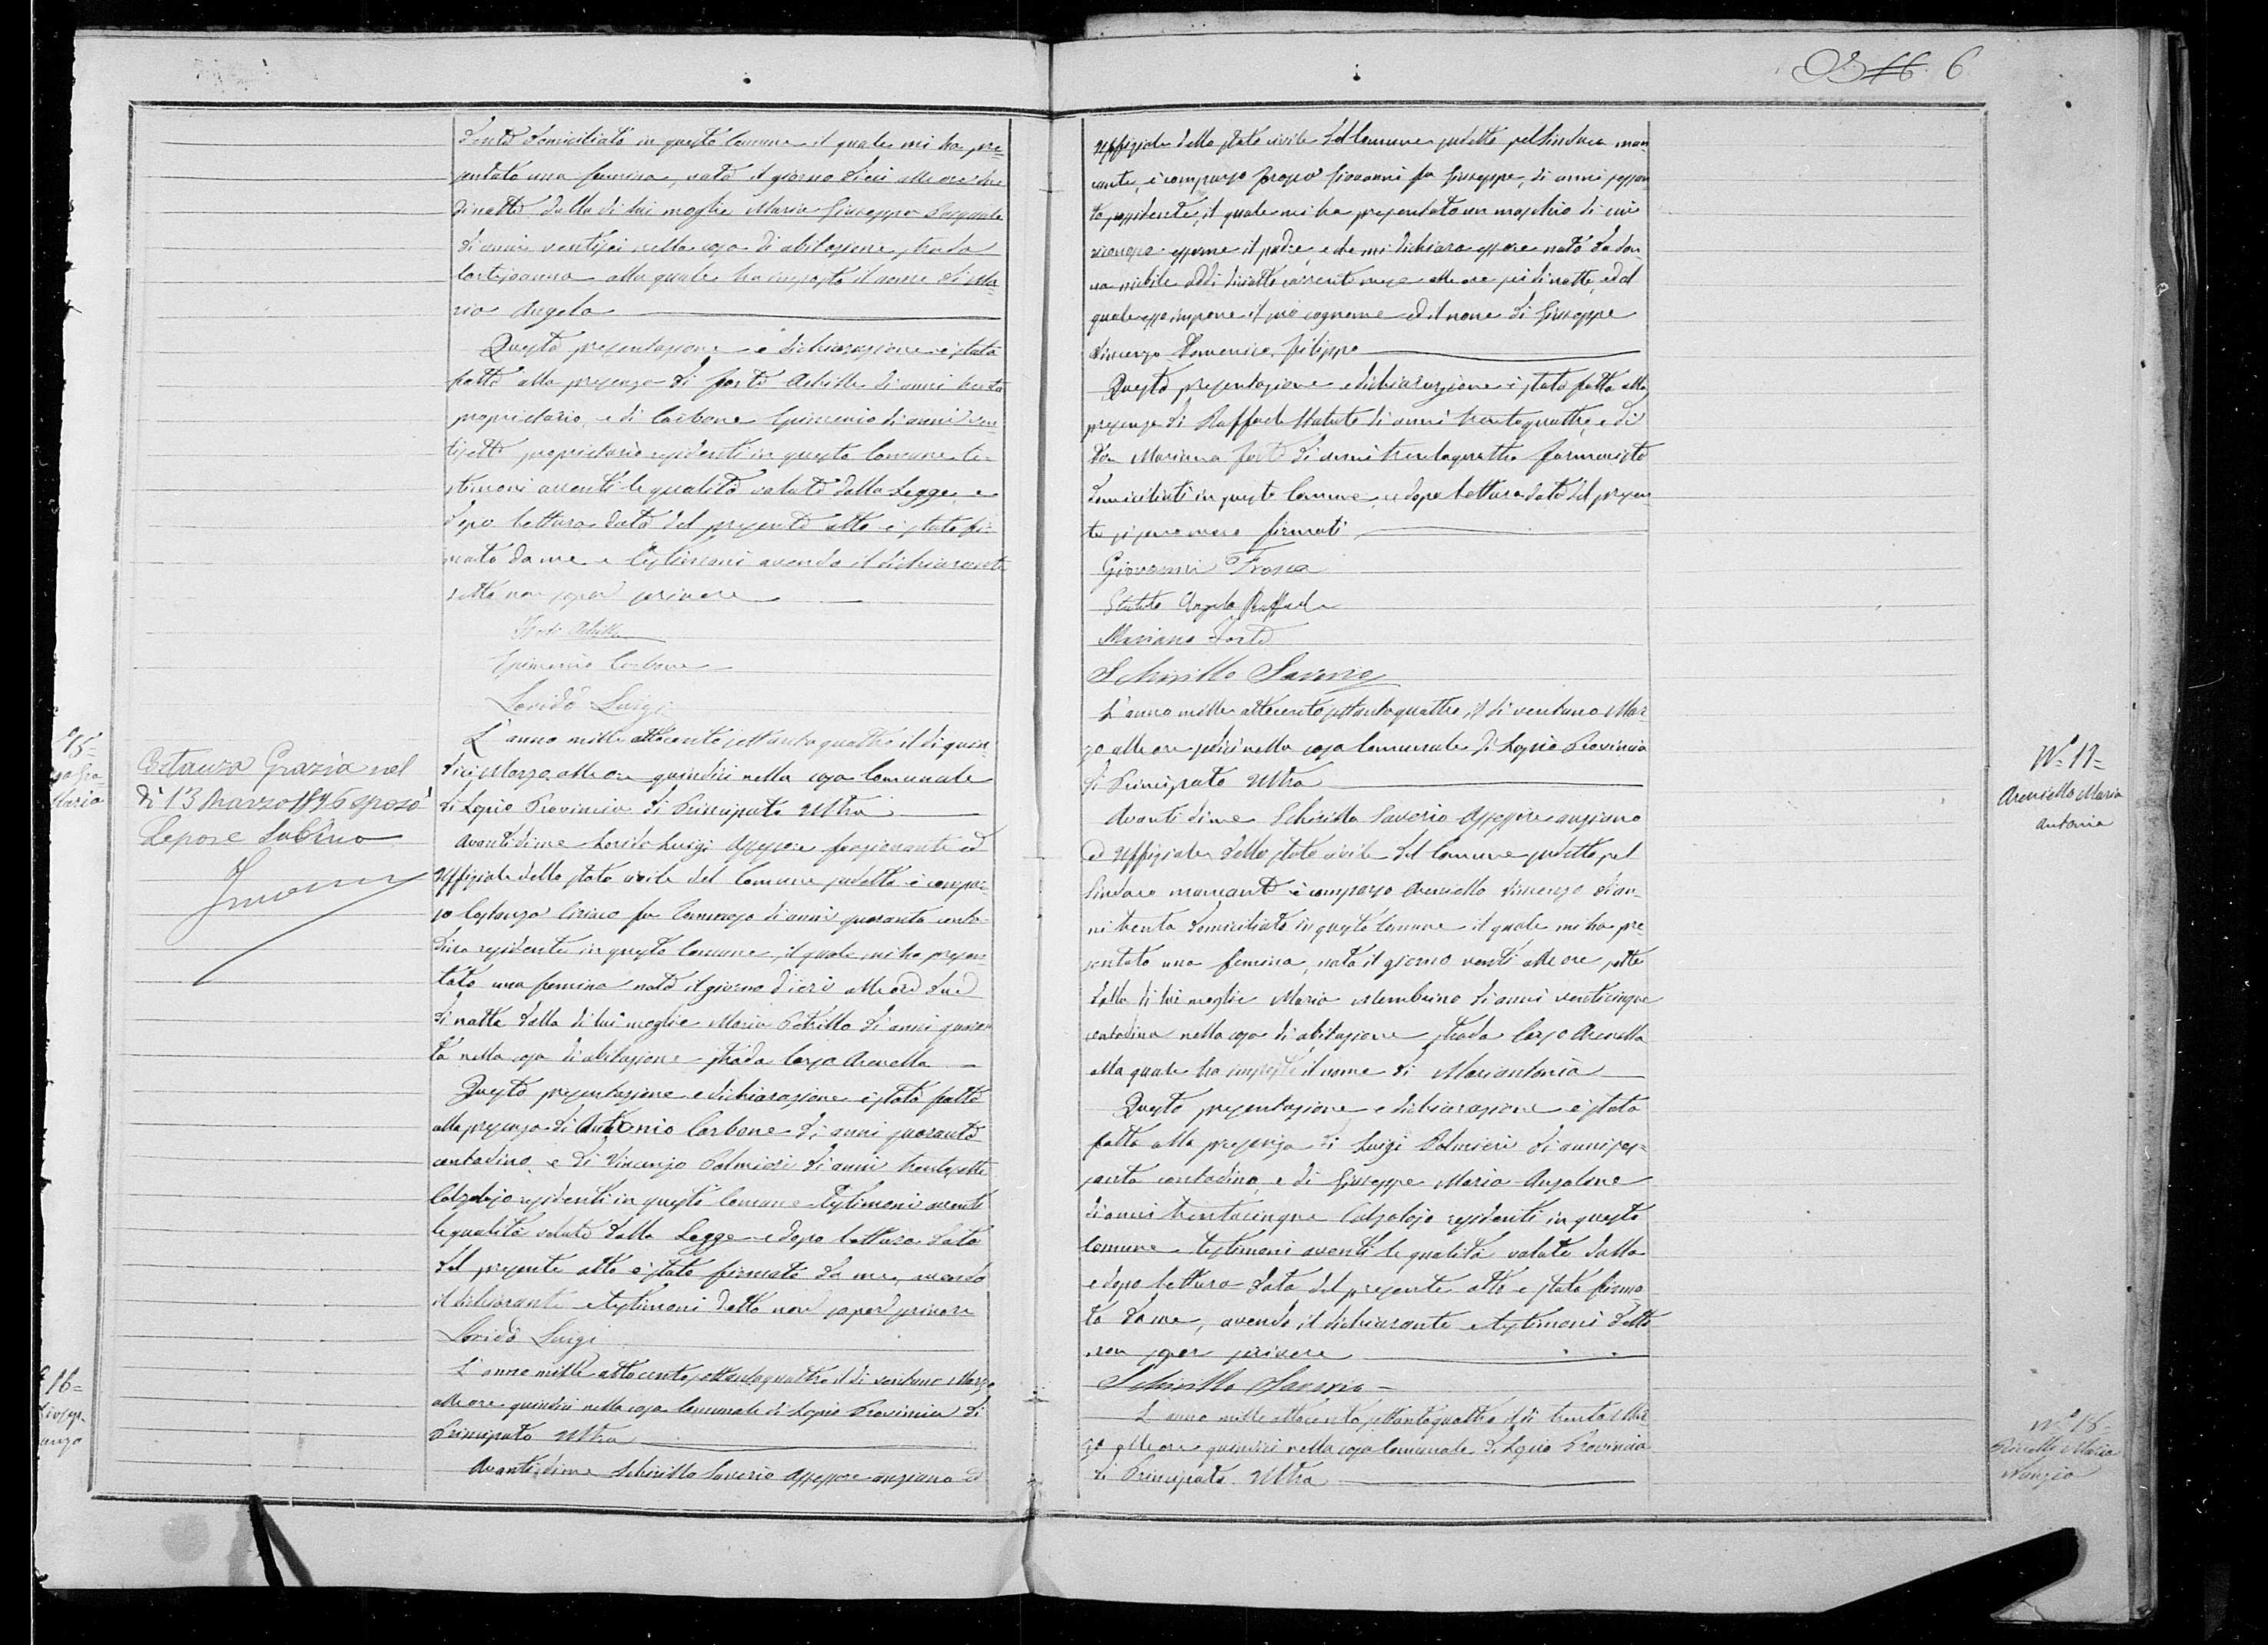 dente domiciliato in questo Comune il quale mi ha pre=
sentato una femina, nata il giorno dieci alle ore tre
di notte dalla di lui moglie Maria Giuseppa Pasquale
di anni ventisei nella casa di abitazione strada
alla quale ha imposto il nome di Ma=
ria Angela
Questa presentazione e dichiarazione è stata
fatta alla presenza di Forte Achille di anni trenta
proprietario, e di Carbone Epimenio di anni ven
tisette proprietario residenti in questo Comune te=
stimoni aventi le qualità volute dalla Legge e
dopo lettura data del presente atto è stato fir=
mato da me e testimoni avendo il dichiarante
detto non saper scrivere
Forte Achille
Epimenio Carbone
Lorido Luigi
15=
Maria
L'anno mille ottocento settantaquattro il di quin=
dici Marzo alle ore quindici nella casa Comunale
di Lapio Provincia di Principato Ultra
Costanza Grazia nel
dì 13 Marzo 1896 sposò
Lepore Sabino
Avanti di me Lorido Luigi Assessore funzionante ed
Uffiziale dello stato civile del Comune sudetto è compar=
so Costanza Ciriaco fu Tommaso di anni quaranta conta=
dino residente in questo Comune, il quale mi ha presen=
tato una femina nata il giorno dieri alle ore due
di notte dalla di lui moglie Maria Petrillo di anni quaran
ta nella casa di abitazione strada Largo Arenella
Questa presentazione e dichiarazione è stata fatta
alla presenza di Antonio Carbone di anni quaranta
contadino e di Vincenzo Palmieri di anni trentasette
Calzolajo residenti in questo Comune testimoni aventi
le qualità volute dalla Legge e dopo lettura data
del presente atto è stato firmato da me, avendo
il dichiarante e testimoni detto non saper scrivere
Lorido Luigi
16=
L'anno mille ottocento settantaquattro il di ventuno Marzo
alle ore quindici nella casa Comunale di Lapio Provincia di
Principato Ultra
Avanti di me Schirillo Saverio Assessore anziano ed
6
Uffiziale dello stato civile del Comune sudetto pel Sindaco man
cante, è comparso Giovanni fu Giuseppe, di anni sessan
ta possidente, il quale mi ha presentato un maschio di cui
essere il padre, e che mi dichiara essere nato da don=
na nubile addì diciotto corrente mese alle ore sei di notte, ed al
quale esso impone il suo cognome ed il nome di Giuseppe
Vincenzo Domenico Filippo
Questa presentazione e dichiarazione è stata fatta alla
presenza di Raffaele Statuto di anni trentaquattro, e di
Don Mariano Forte di anni trentaquattro farmacista
domiciliati in questo Comune, e dopo lettura data del presen
te si sono meco firmati
Giovanni Frosca
Statuto Angelo Raffaele
Mariano Forte
Schirillo Saverio
L'anno mille ottocento settantaquattro, il di ventuno Mar=
zo alle ore sedici nella casa Comunale di Lapio Provincia
di Principato Ultra
N° 17=
Arciello Maria
Antonia
Avanti di me Schirillo Saverio Assessore anziano
ed Uffiziale dello stato civile del Comune sudetto, pel
Sindaco mancante è comparso Vincenzo di an=
ni trenta domiciliato in questo Comune il quale mi ha pre=
sentato una femina, nata il giorno venti alle ore sette
dalla di lui moglie Maria Membrino di anni venticinque
contadina nella casa di abitazione strada Largo Arenella
alla quale ha imposto il nome di Mariantonia
Questa presentazione e dichiarazione è stata
fatta alla presenza di Luigi Palmieri di anni ses=
santa contadino, e di Giuseppe Maria Anzalone
di anni trentacinque Calzolajo residenti in questo
Comune testimoni aventi le qualità volute dalla
e dopo lettura data del presente atto è stato firma=
to da me, avendo il dichiarante e testimoni detto
non saper scrivere
Schirillo Saverio
L'anno mille ottocento settantaquattro il di trenta Mar=
zo alle ore quindici nella casa Comunale di Lapio Provincia
di Principato Ultra
N° 18=
Maria
Nunzia